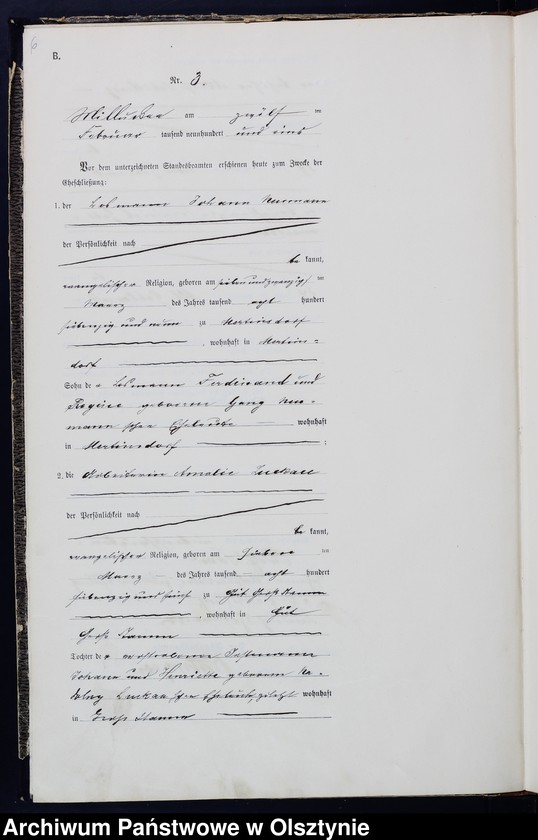 6
B.
Nr. 3.
am zwölf ten
Februar tausend neunhundert und eins
Vor dem unterzeichneten Standesbeamten erschienen heute zum Zwecke der
Eheschließung:
1. der Losmann Johann
der Persönlichkeit nach
be kannt,
evangelischer Religion, geboren am sieben und zwanzigsten
März des Jahres tausend acht hundert
siebenzig und neun zu Mertinsdorf
, wohnhaft in Mertins-
dorf
Sohn des Losmann Ferdinand und
Regine geborene
Eheleute wohnhaft
in Mertinsdorf ;
2. die Arbeiterin Amalie Luckau
der Persönlichkeit nach
be kannt,
evangelischer Religion, geboren am
März des Jahres tausend acht hundert
siebenzig und fünf zu Gut Groß
, wohnhaft in Gut
Groß
Tochter des verstorbenen Instmann
Johann und Henriette geborene
Eheleute, zuletzt wohnhaft
in Groß
Archiwum Państwowe w Olsztynie